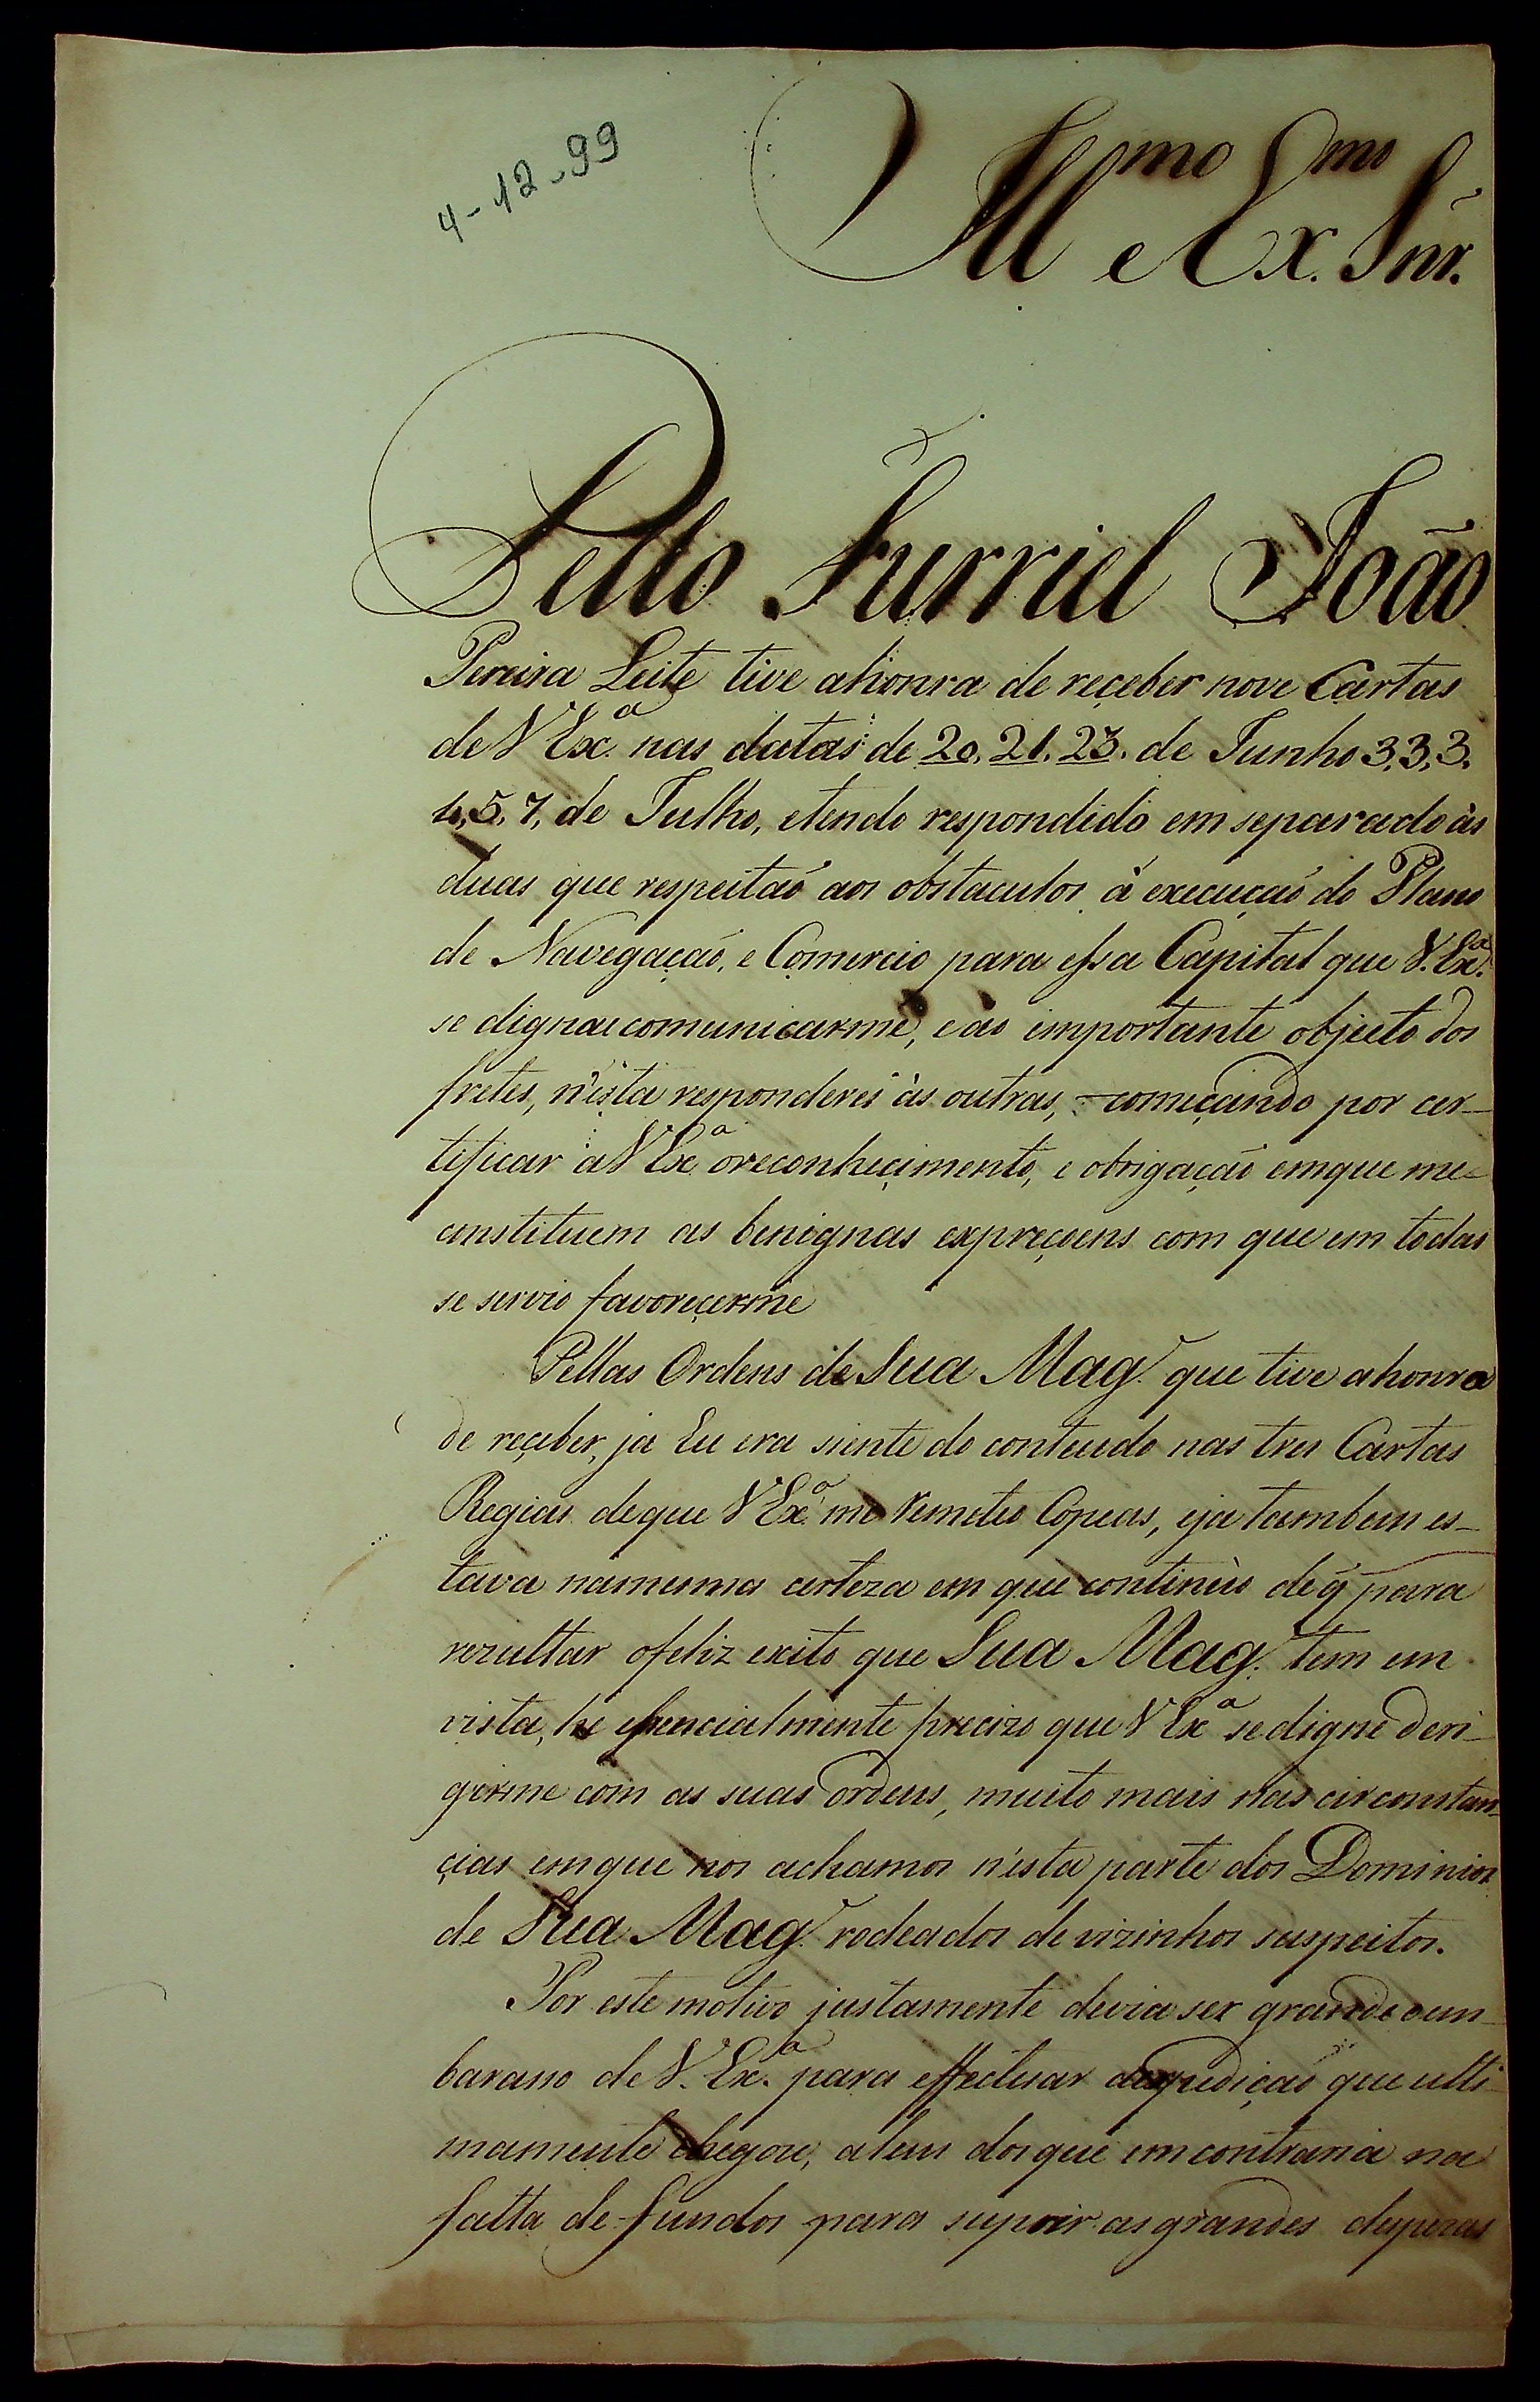 4-12-99
Ill.mo e Ex.mo Snr.
Pello Furriel João
Pereira Leite tive ahonra de reçeber nove Cartas
de V Ex.a nas datas de 20. 21. 23. de Junho 3, 3, 3,
4, 5, 7, de Julho, etendo respondido em separado ás
duas que respeitaõ aos obstaculos á execuçaõ do Plano
de Navegaçaõ, e Comercio para essa Capital que V. Ex.a
se digna comunicarme, e ao importante objecto dos
fretes, n'esta responderei ás outras, começando por cer-
tificar a V Ex.a oreconheçimento, e obrigaçaõ emque me
constituem as benignas expreçoens com que em todas
se servio favoreçerme
Pellas Ordens de Sua Mag.e que tive ahonra
de reçeber, ja Eu era siente do conteudo nas tres Cartas
Regias deque V Ex.a me remeteo Copeas, eja tambem es-
tava namesma certeza em que continúo de q̃ para
rezultar ofeliz exito que Sua Mag.e tem em
vista, he essencialmente precizo que V Ex.a sedigne deri-
girme com as suas ordens, muito mais nas circonstan-
çias emque nos achamos n'esta parte dos Dominios
de Sua Mag.e rodeados de vizinhos suspeitos.
Por este motivo justamente devia ser grande o em-
barasso de V. Ex.a para effectuar aexpediçaõ que ulti-
mamente chegou, alem dos que emcontraria na
falta de fundos para suprir as grandes despezas